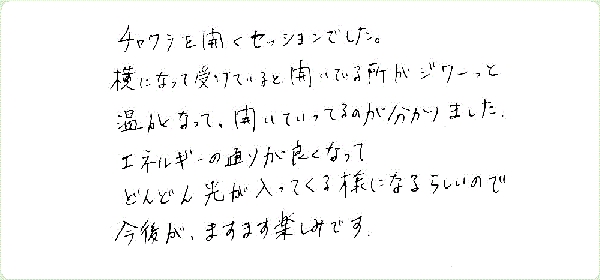 チャクラを開くセッションでした。
横になって受けていると開いている所がジワーっと
温かくなって、開いていってるのが分かりました。
エネルギーの通りが良くなって
どんどん光が入ってくる様になるらしいので
今後が、ますます楽しみです.